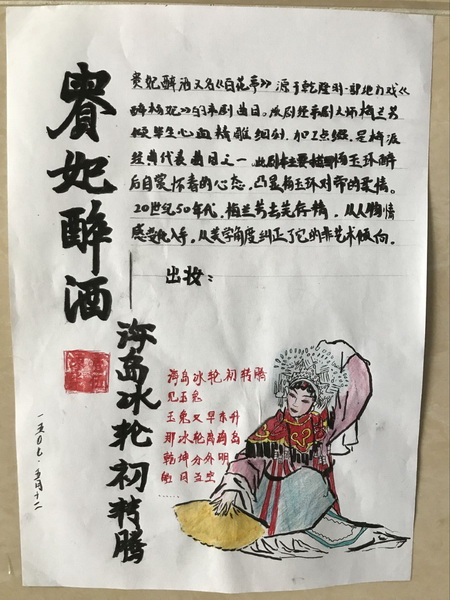 貴妃醉酒
贵妃醉酒又名《百花亭》源于乾隆时一部地方戏《
醉杨妃》的京剧剧目。该剧经京剧大师梅兰芳
倾毕生心血精雕细刻,加工点缀,是梅派
经典代表曲目之一,此剧本主要描写杨玉环醉
后自赏怀春的心态,凸显杨玉环对帝的柔情。
20世纪50年代,梅兰芳去芜存精,从人物情
感变化入手,从美学角度纠正了它的非艺术倾向.
出妆:
海岛冰轮初转腾
海岛冰轮初转腾
见玉兔
玉兔又早东升
那冰轮离海岛
乾坤分外明
皓月当空
......
一五〇七.五月十二